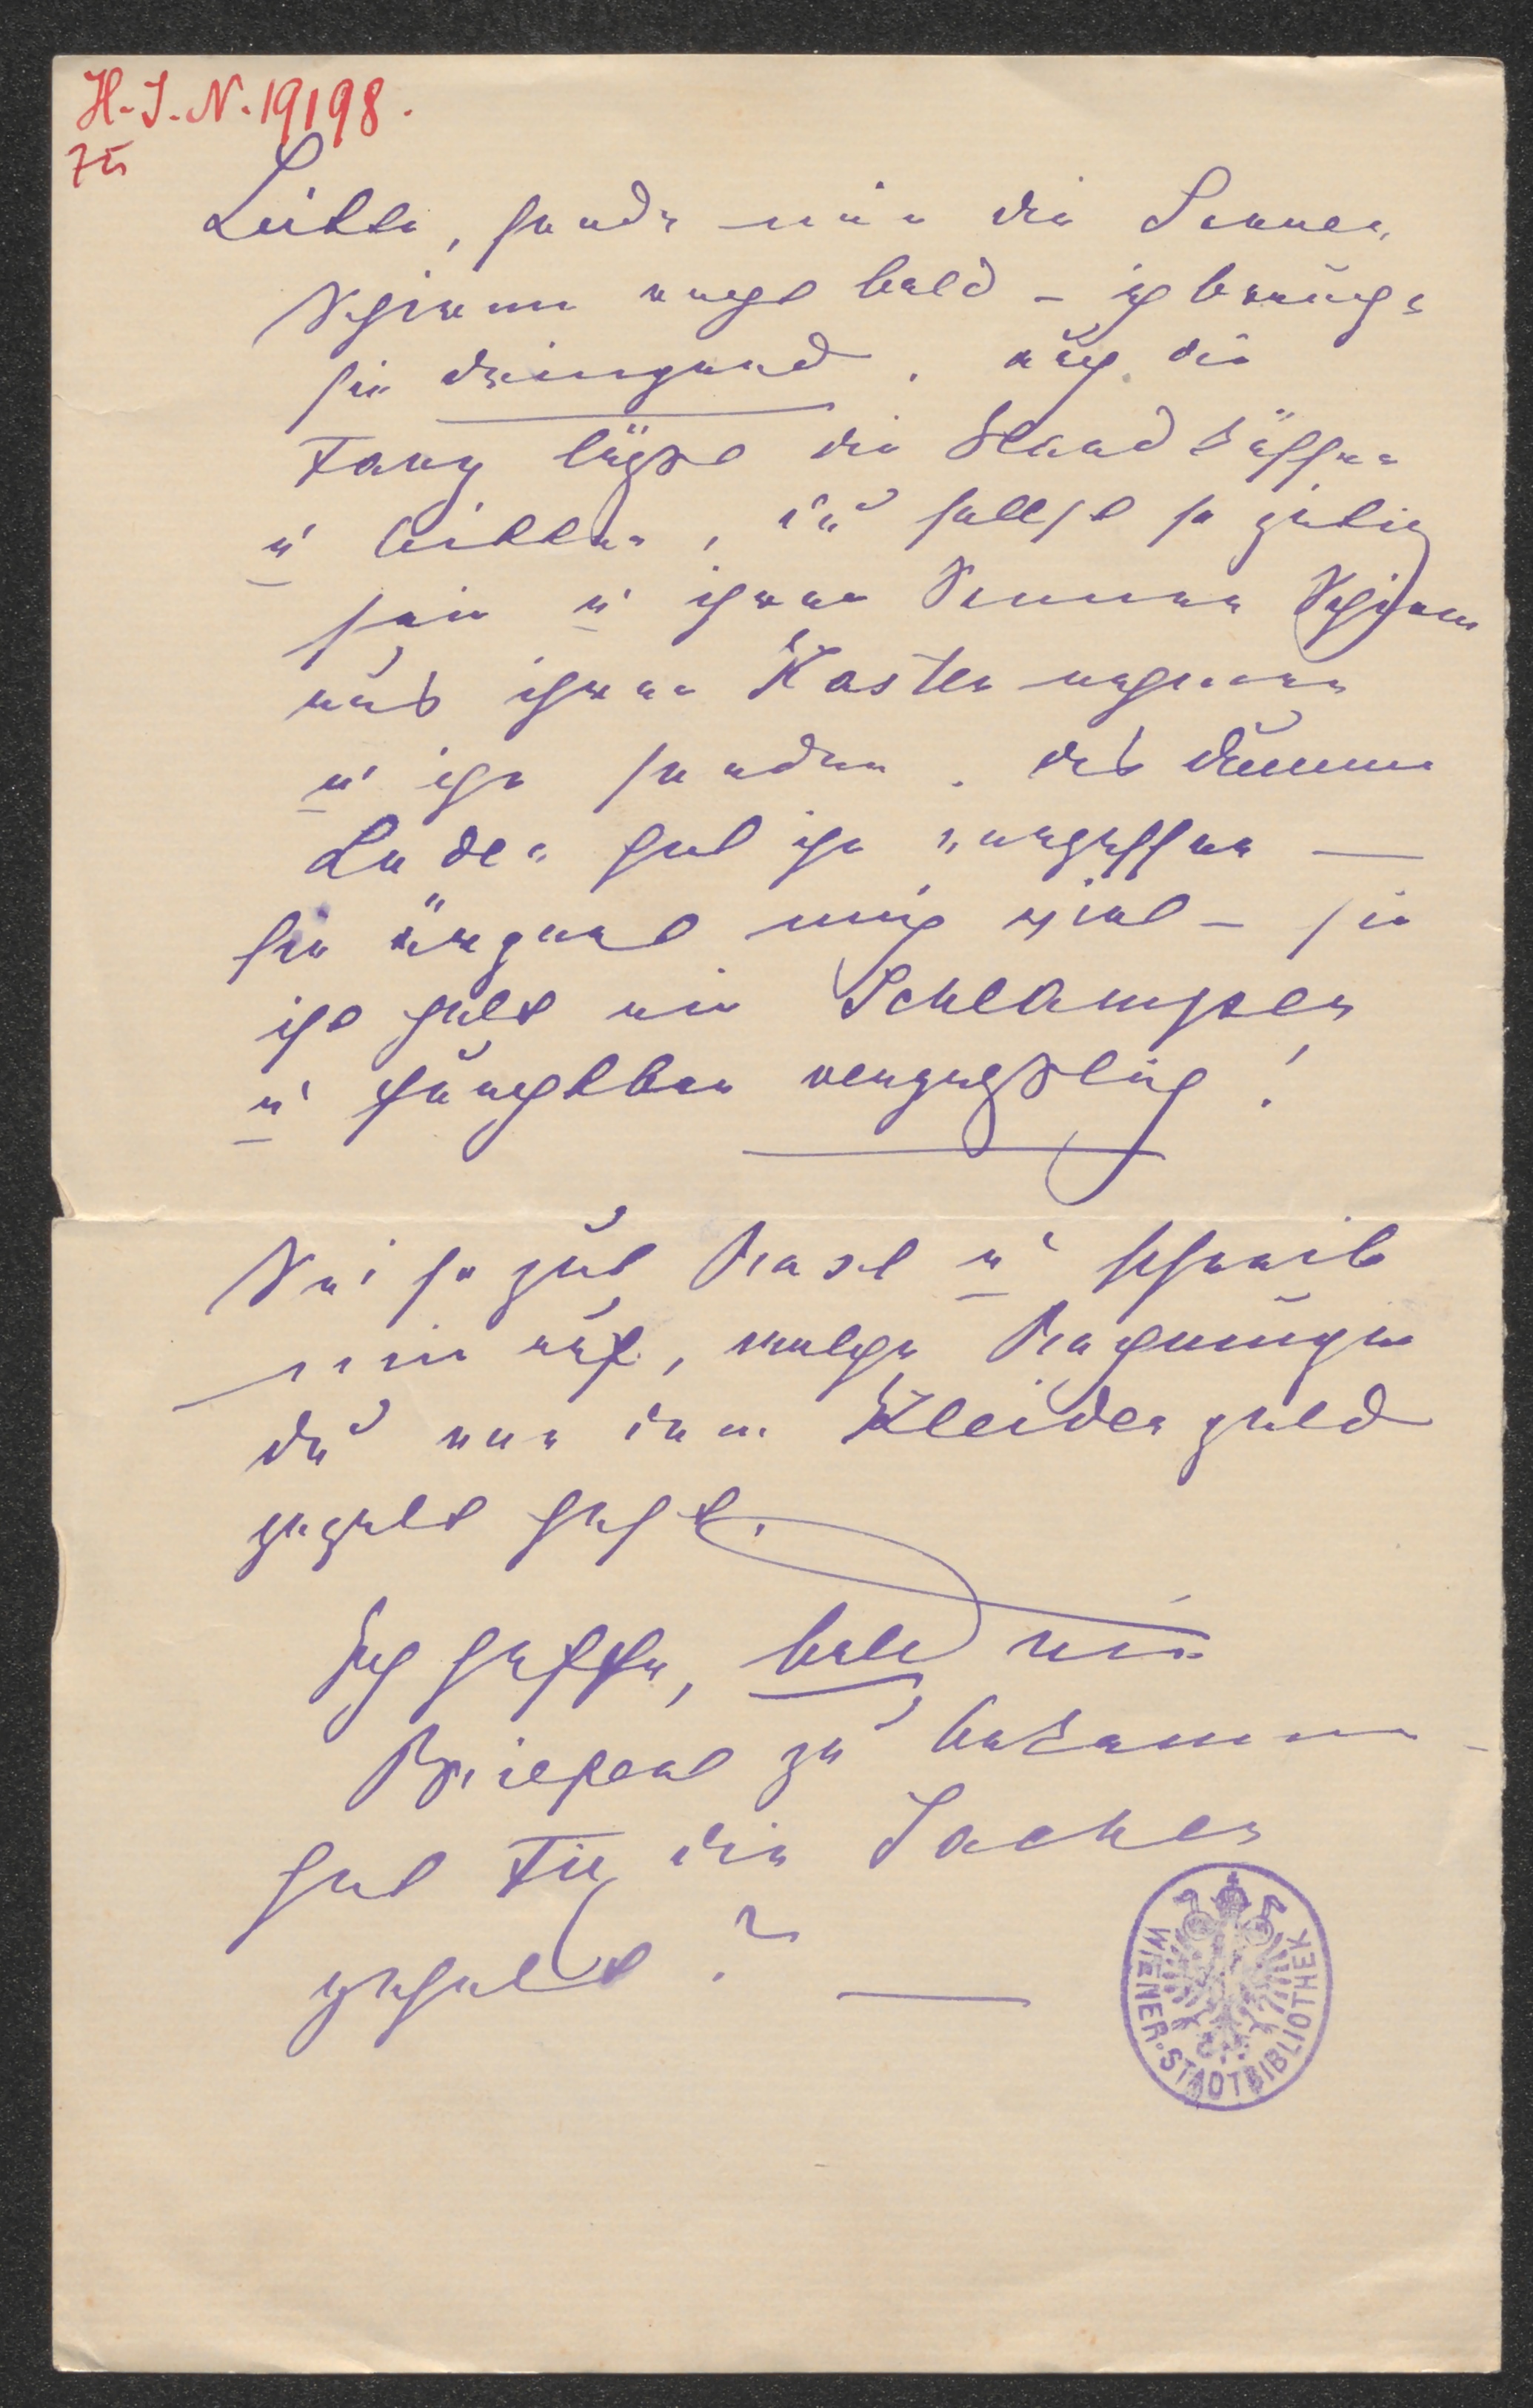 H. I. N. 19198.
75
Bitte, sende mir die Sonnen
Schirme recht bald – ich brauche
sie dringend. auch die
Fany läßt die Hand küssen
u bitten, du sollst so gütig
sein u ihren Sonnen Schirm
aus ihrem Kasten nehmen
u ihr senden. das dumme
Luder hat ihn vergessen —
sie ärgert mich viel – sie
ist halt ein Schlampen
u furchtbar vergeßlich!
Sei so gut u schreib
mir auf, welche Rechnungen
du von dem Kleidergeld
gezahlt hast.
Ich hoffe, bald ein
Brieferl zu bekommen –
hat die Sachen
geholt? —
WIENER STADTBIBLIOTHEK